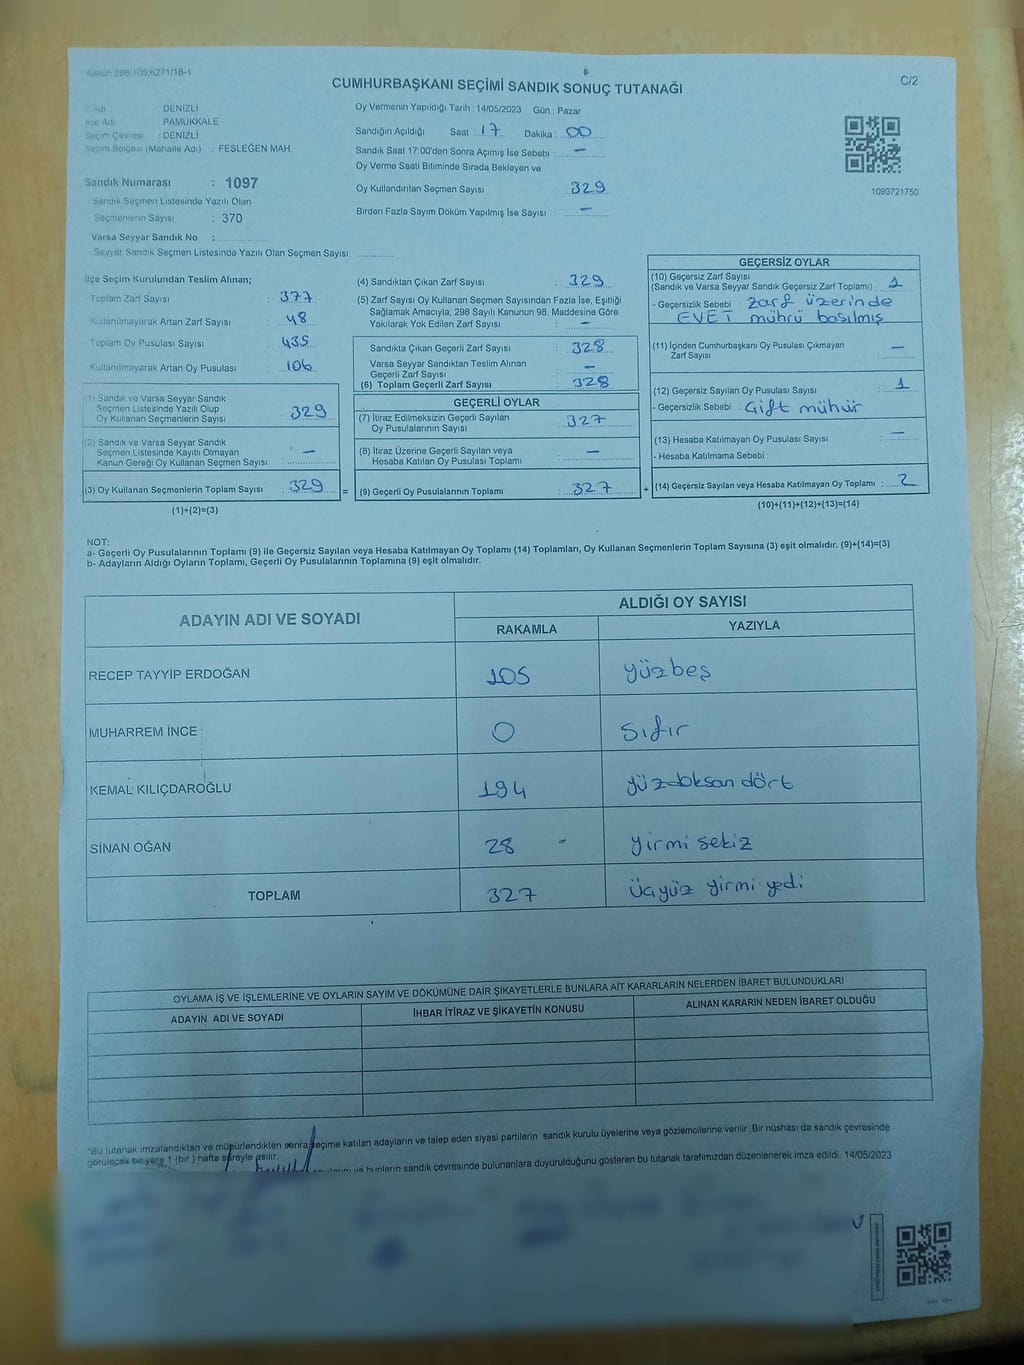 Kanun 298/105,6271/18-1
CUMHURBAŞKANI SEÇİMİ SANDIK SONUÇ TUTANAĞI
C/2
Adı DENİZLİ
İlçe Adı PAMUKKALE
Seçim Çevresi : DENİZLİ
Seçim Bölgesi (Mahalle Adı) : FESLEĞEN MAH.
Sandık Numarası : 1097
Sandık Seçmen Listesinde Yazılı Olan
Seçmenlerin Sayısı : 370
Varsa Seyyar Sandık No :
Seyyar Sandık Seçmen Listesinde Yazılı Olan Seçmen Sayısı:
Oy Vermenin Yapıldığı Tarih : 14/05/2023 Gün : Pazar
Sandığın Açıldığı Saat : 17 Dakika : 00
Sandık Saat 17:00'den Sonra Açımış İse Sebebi : —
Oy Verme Saati Bitiminde Sırada Bekleyen ve
Oy Kullandırılan Seçmen Sayısı 329
Birden Fazla Sayım Döküm Yapılmış İse Sayısı : —
1093721750
İlçe Seçim Kurulundan Teslim Alınan;
Toplam Zarf Sayısı : 377
Kullanılmayarak Artan Zarf Sayısı : 48
Toplam Oy Pusulası Sayısı : 435
Kullanılmayarak Artan Oy Pusulası : 106
(1) Sandık ve Varsa Seyyar Sandık
Seçmen Listesinde Yazılı Olup
Oy Kullanan Seçmenlerin Sayısı : 329
(2) Sandık ve Varsa Seyyar Sandık
Seçmen Listesinde Kayıtlı Olmayan
Kanun Gereği Oy Kullanan Seçmen Sayısı : —
(3) Oy Kullanan Seçmenlerin Toplam Sayısı : 329 =
(1)+(2)=(3)
(4) Sandıktan Çıkan Zarf Sayısı : 329
(5) Zarf Sayısı Oy Kullanan Seçmen Sayısından Fazla İse, Eşitliği
Sağlamak Amacıyla; 298 Sayılı Kanunun 98. Maddesine Göre
Yakılarak Yok Edilen Zarf Sayısı : —
Sandıkta Çıkan Geçerli Zarf Sayısı : 328
Varsa Seyyar Sandıktan Teslim Alınan
Geçerli Zarf Sayısı : —
(6) Toplam Geçerli Zarf Sayısı : 328
GEÇERLİ OYLAR
(7) İtiraz Edilmeksizin Geçerli Sayılan
Oy Pusulalarının Sayısı : 327
(8) İtiraz Üzerine Geçerli Sayılan veya
Hesaba Katılan Oy Pusulası Toplamı : —
(9) Geçerli Oy Pusulalarının Toplamı : 327 +
GEÇERSİZ OYLAR
(10) Geçersiz Zarf Sayısı
(Sandık ve Varsa Seyyar Sandık Geçersiz Zarf Toplamı) : 1
- Geçersizlik Sebebi : Zarf üzerinde
EVET mührü basılmış
(11) İçinden Cumhurbaşkanı Oy Pusulası Çıkmayan
Zarf Sayısı : —
(12) Geçersiz Sayılan Oy Pusulası Sayısı : 1
- Geçersizlik Sebebi : Gift mühür
(13) Hesaba Katılmayan Oy Pusulası Sayısı : —
- Hesaba Katılmama Sebebi :
(14) Geçersiz Sayılan veya Hesaba Katılmayan Oy Toplamı : 2
(10)+(11)+(12)+(13)=(14)
NOT:
a- Geçerli Oy Pusulalarının Toplamı (9) ile Geçersiz Sayılan veya Hesaba Katılmayan Oy Toplamı (14) Toplamları, Oy Kullanan Seçmenlerin Toplam Sayısına (3) eşit olmalıdır. (9)+(14)=(3)
b- Adayların Aldığı Oyların Toplamı, Geçerli Oy Pusulalarının Toplamına (9) eşit olmalıdır.
ADAYIN ADI VE SOYADI
ALDIĞI OY SAYISI
RAKAMLA YAZIYLA
RECEP TAYYİP ERDOĞAN 105 yüzbeş
MUHARREM İNCE 0 sıfır
KEMAL KILIÇDAROĞLU 194 yüzdoksan dört
SİNAN OĞAN 28 yirmi sekiz
TOPLAM 327 üçyüz yirmi yedi
OYLAMA İŞ VE İŞLEMLERİNE VE OYLARIN SAYIM VE DÖKÜMÜNE DAİR ŞİKAYETLERLE BUNLARA AİT KARARLARIN NELERDEN İBARET BULUNDUKLARI
ADAYIN ADI VE SOYADI İHBAR İTİRAZ VE ŞİKAYETİN KONUSU ALINAN KARARIN NEDEN İBARET OLDUĞU
*Bu tutanak imzalandıktan ve mühürlendikten sonra seçime katılan adayların ve talep eden siyasi partilerin sandık kurulu üyelerine veya gözlemcilerine verilir. Bir nüshası da sandık çevresinde
görülecek bir yere 1 (bir ) hafta süreyle asılır.
ve bunların sandık çevresinde bulunanlara duyurulduğunu gösteren bu tutanak tarafımızdan düzenlenerek imza edildi. 14/05/2023